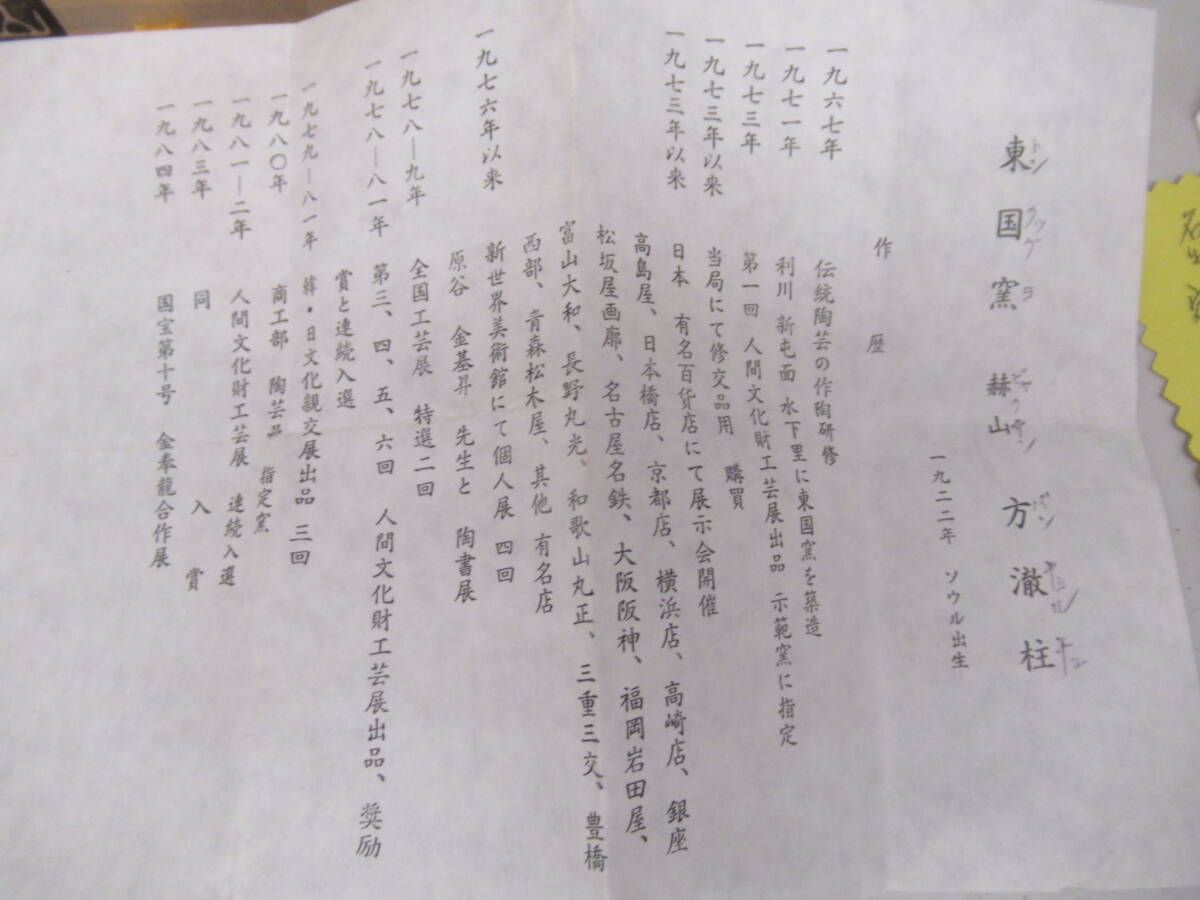 東国窯 赫山 方澈柱
一九二二年 ソウル出生
作歴
一九六七年 伝統陶芸の作陶研修
一九七一年 利川 新屯面 水下里に東国窯を築造
一九七三年 第一回 人間文化財工芸展出品 示範窯に指定
一九七三年以来 当局にて修交品用 購買
一九七三年以来 日本 有名百貨店にて展示会開催
高島屋、日本橋店、京都店、横浜店、高崎店、銀座
松坂屋画廊、名古屋名鉄、大阪阪神、福岡岩田屋、
富山大和、長野丸光、和歌山丸正、三重三交、豊橋
西部、青森松木屋、其他 有名店
一九七六年以来 新世界美術館にて個人展 四回
原谷 金基昇 先生と 陶書展
一九七八―九年 全国工芸展 特選二回
一九七八―八一年 第三、四、五、六回 人間文化財工芸展出品、奨励
賞と連続入選
一九七九―八一年 韓・日文化親交展出品 三回
一九八〇年 商工部 陶芸品 指定窯
一九八一―二年 人間文化財工芸展 連続入選
一九八三年 同 入賞
一九八四年 国宝第十号 金奉龍合作展